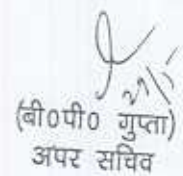 (बी०पी० गुप्ता)
अपर सचिव